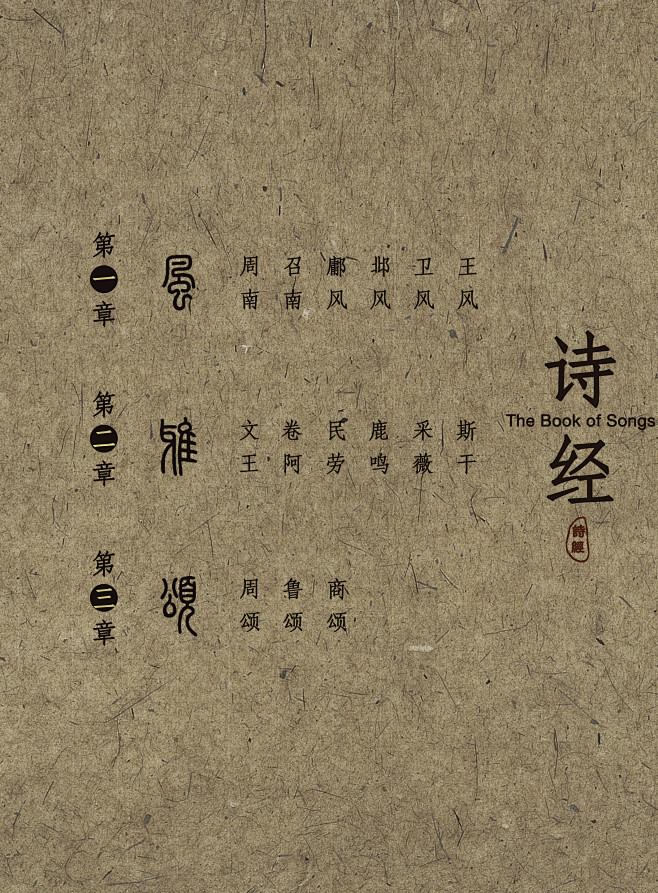 诗经
The Book of Songs
詩經
第一章
風
周南
召南
鄘风
邶风
卫风
王风
第二章
雅
文王
卷阿
民劳
鹿鸣
采薇
斯干
第三章
頌
周颂
鲁颂
商颂